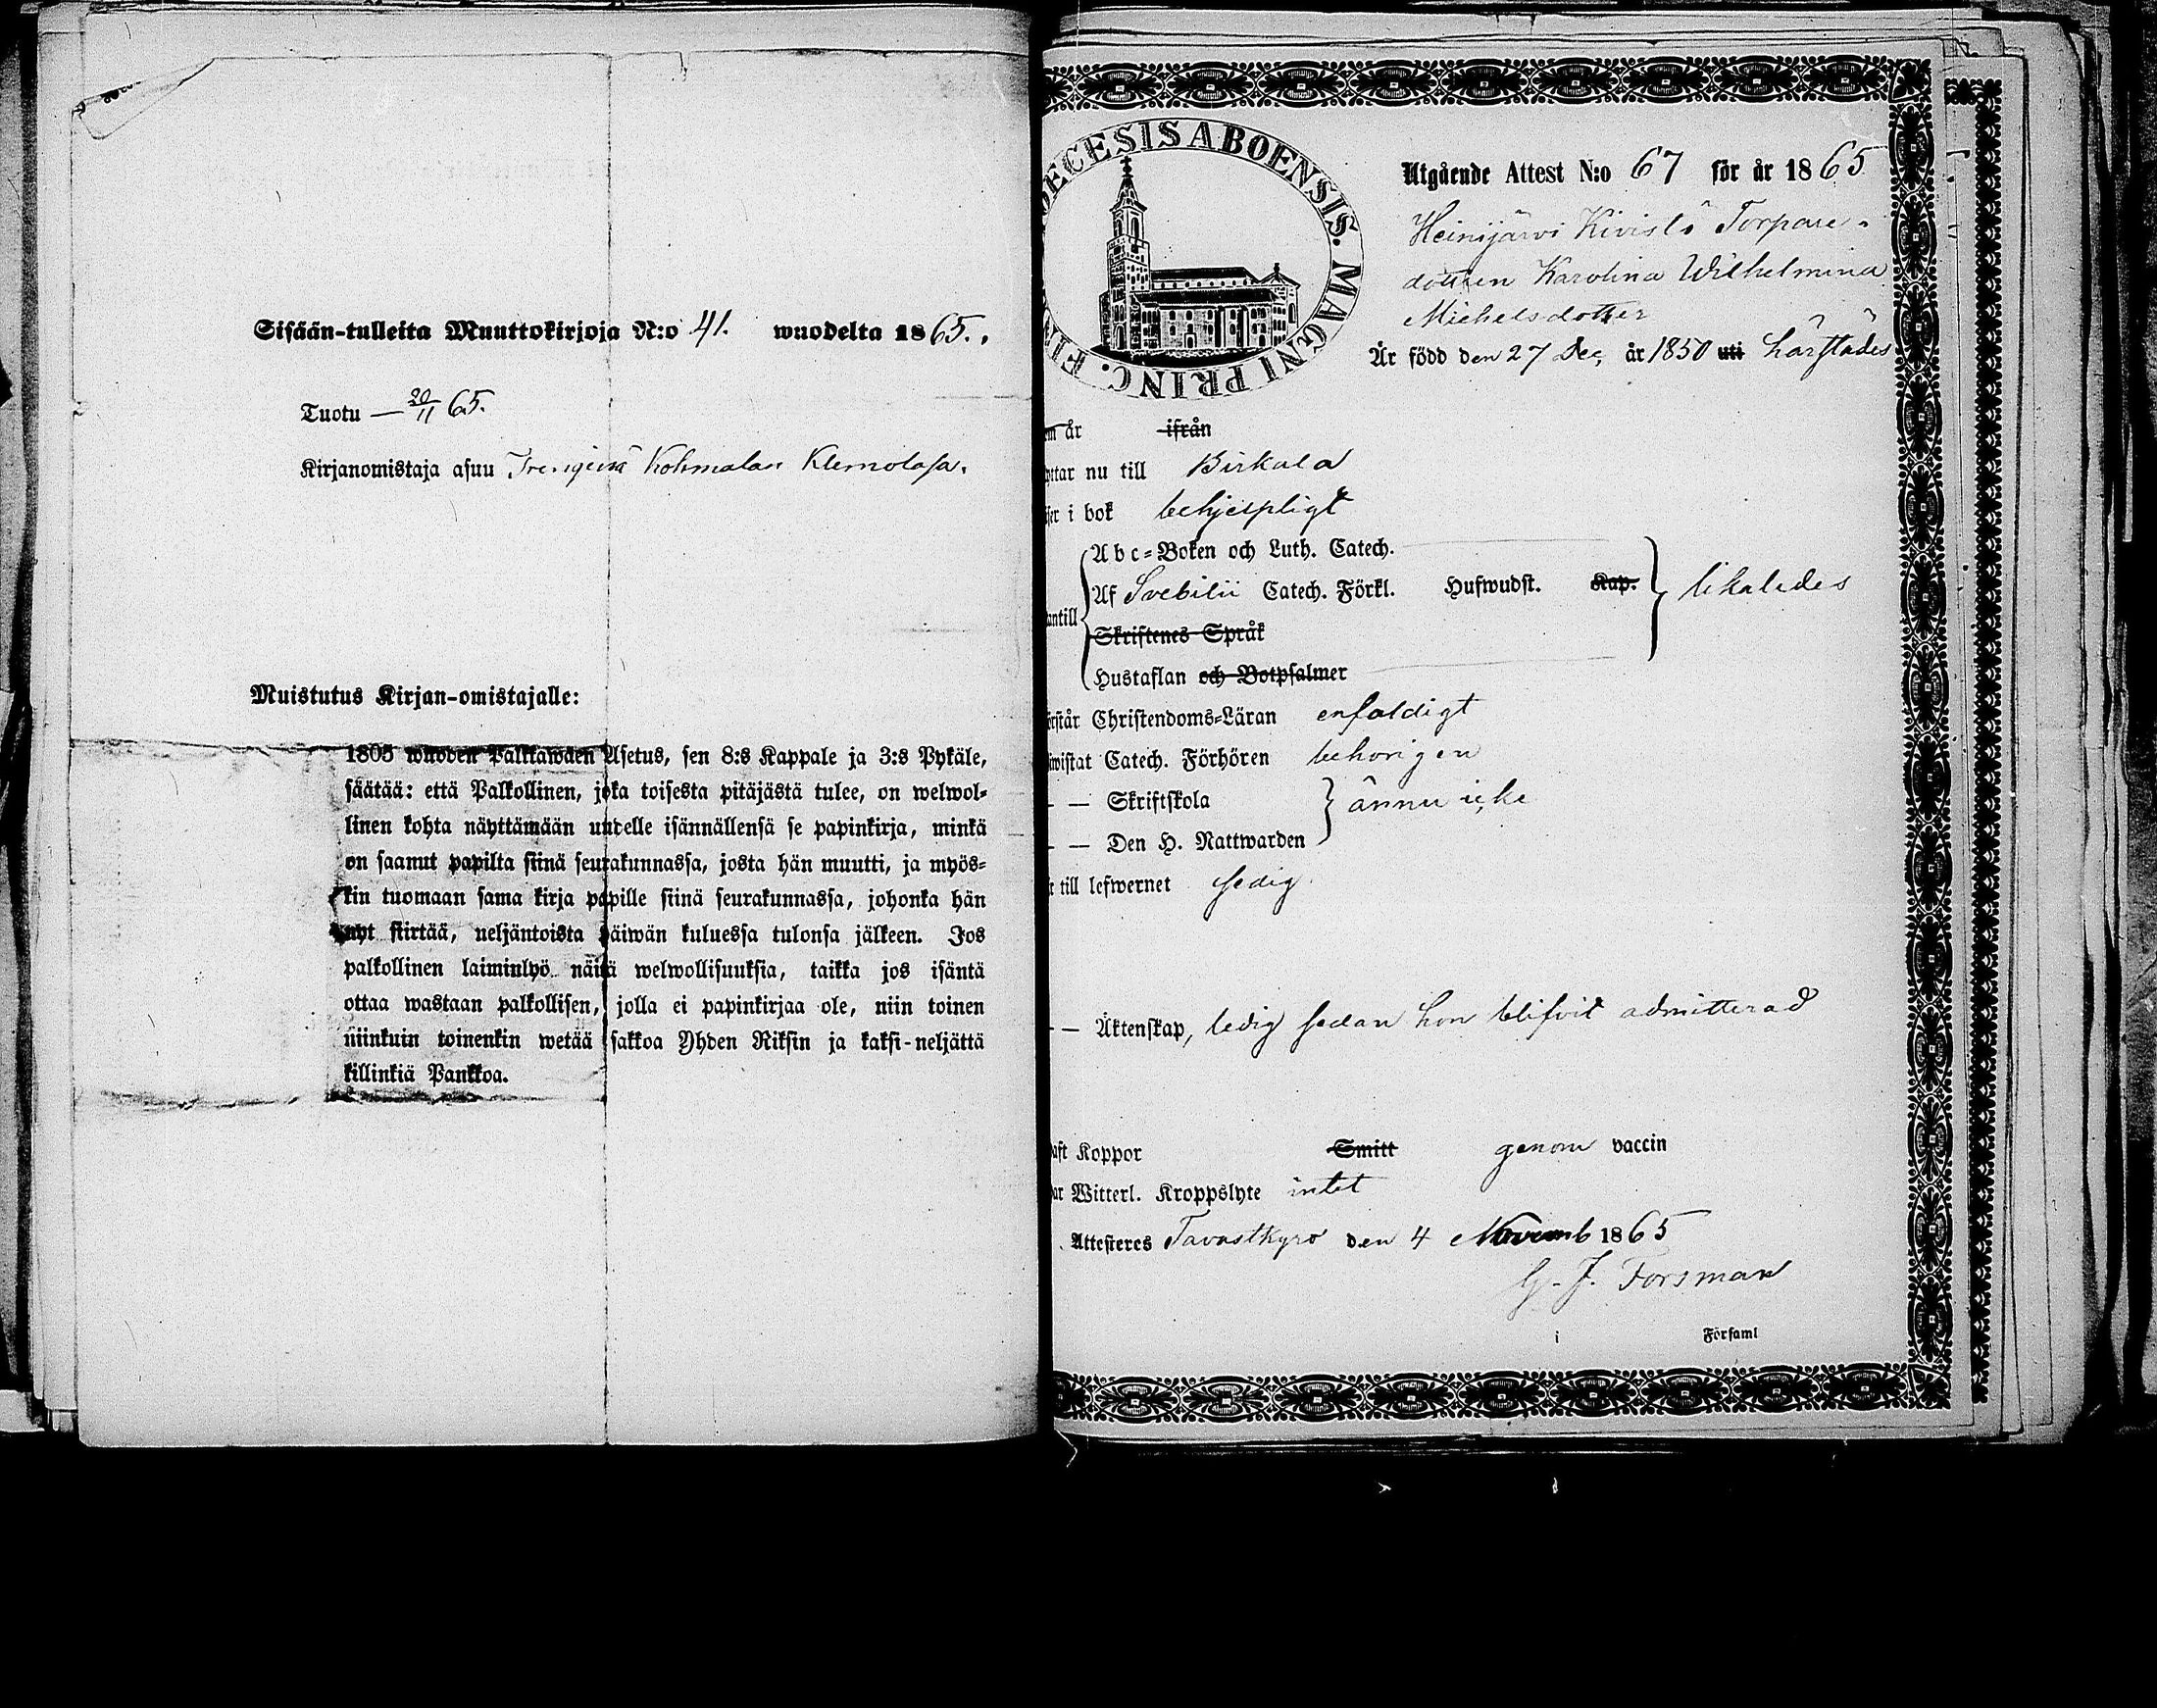 Sisään-tulleita Muuttokirjoja N:o 41. wuodelta 1865.
Tuotu — 20/11 65.
Kirjanomistaja asuu Kohmalan Klemolasa.
Muistutus Kirjan-omistajalle:
1805 wuoden Palkkawäen Asetus, sen 8:s Kappale ja 3:s Pykäle,
säätää: että Palkollinen, joka toisesta pitäjästä tulee, on welwol-
linen kohta näyttämään uudelle isännällensä se papinkirja, minkä
on saanut papilta siinä seurakunnassa, josta hän muutti, ja myös-
kin tuomaan sama kirja papille siinä seurakunnassa, johonka hän
nyt siirtää, neljäntoista päiwän kuluessa tulonsa jälkeen. Jos
palkollinen laiminlyö näitä welwollisuuksia, taikka jos isäntä
ottaa wastaan palkollisen, jolla ei papinkirjaa ole, niin toinen
niinkuin toinenkin wetää sakkoa Yhden Riksin ja kaksi-neljättä
killinkiä Pankkoa.
ECESIS ABOENSIS. MAGNI PRINC. FIN
Utgående Attest N:o 67 för år 1865
Heinijärvi Kivistö Torpare-
dottren Karolina Wilhelmina
Michelsdotter
Är född den 27 Dec. år 1850 uti härstädes
om år ifrån
nu till Birkala
i bok behjelpligt
Abc-Boken och Luth. Catech.
Af Svebilii Catech. Förkl. Hufwudst. Kap. likaledes
antill
Skriftenes Språk
Hustaflan och Botpsalmer
örstår Christendoms-Läran enfaldigt
wistat Catech. Förhören behörigen
— — Skriftskola ännu icke
— — Den H. Nattwarden
till lefwernet sedig
— — Äktenskap, ledig sedan hon blifvit admitterad
aft Koppor Smitt genom vaccin
ar Witterl. Kroppslyte intet
Attesteres Tavastkyro den 4 Novemb 1865
G. J. Forsman
i Församl